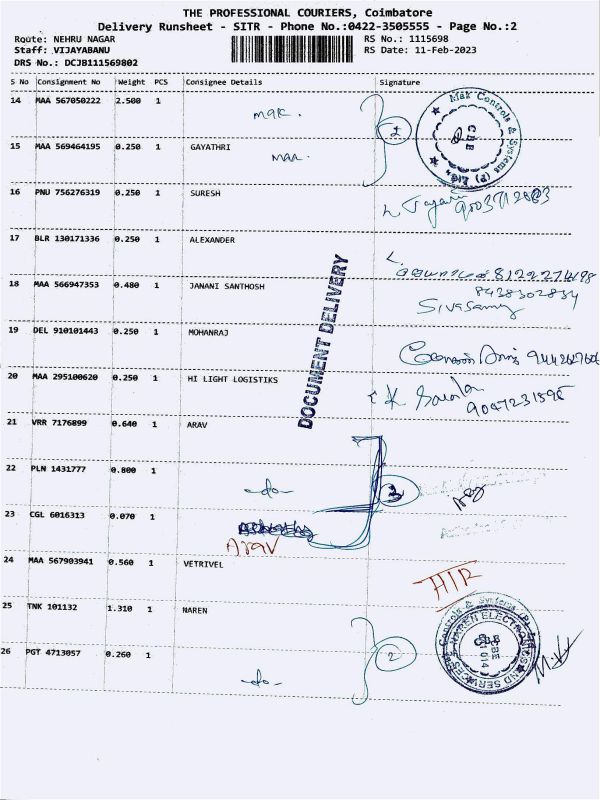 THE PROFESSIONAL COURIERS, Coimbatore
Delivery Runsheet - SITR - Phone No.:0422-3505555 - Page No.:2
Route: NEHRU NAGAR RS No.: 1115698
Staff: VIJAYABANU RS Date: 11-Feb-2023
DRS No.: DCJB111569802
S No Consignment No Weight PCS Consignee Details Signature
14 MAA 567050222 2.500 1 mak. 2
Mak Controls & Systems (P) Ltd. CBE
15 MAA 569464195 0.250 1 GAYATHRI
16 PNU 756276319 0.250 1 SURESH
17 BLR 130171336 0.250 1 ALEXANDER
18 MAA 566947353 0.480 1 JANANI SANTHOSH
8438302834
Sivasamy
19 DEL 910101443 0.250 1 MOHANRAJ
20 MAA 295100620 0.250 1 HI LIGHT LOGISTIKS
K Sarala
9047231596
DOCUMENT DELIVERY
21 VRR 7176899 0.640 1 ARAV
22 PLN 1431777 0.800 1 -do- 3
23 CGL 6016313 0.070 1
Arav
24 MAA 567903941 0.560 1 VETRIVEL
25 TNK 101132 1.310 1 NAREN
26 PGT 4713057 0.260 1 -do- 2